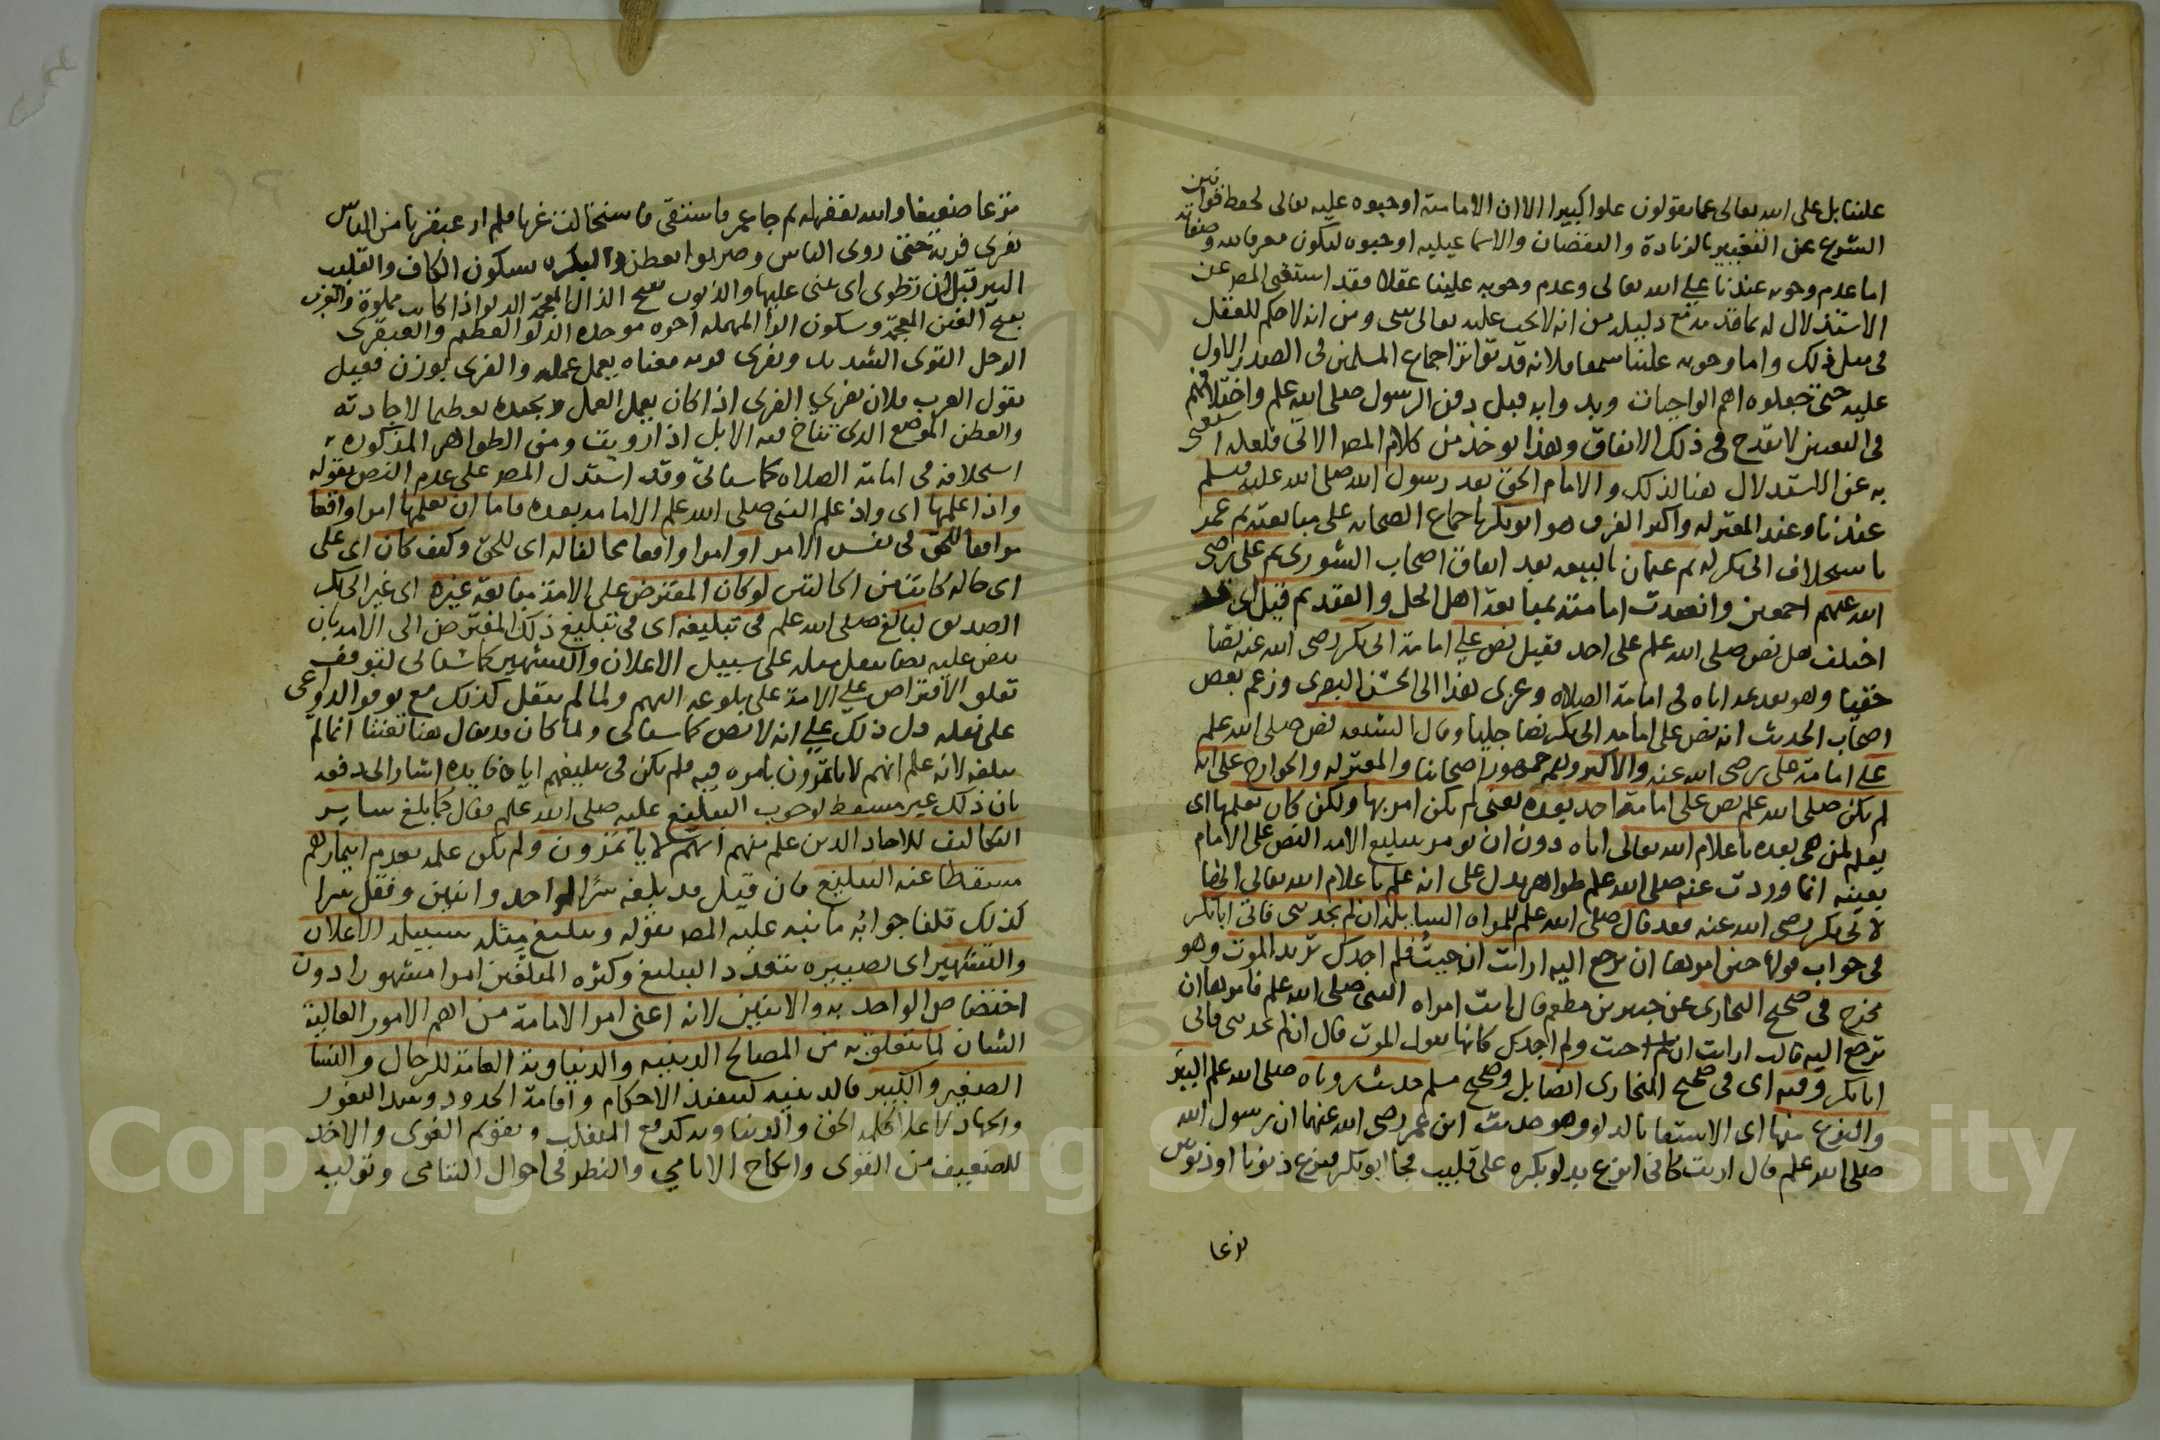 علينا بل على الله تعالى عما يقولون علوا كبيرا الا ان الامامية اوجبوه عليه تعالى لحفظ قوانين
الشرع عن التغيير بالزيادة والنقصان والاسماعيلية اوجبوه ليكون معرفا لله وصفاته
اما عدم وجوبه عندنا على الله تعالى وعدم وجوبه علينا عقلا فقد استغنى المص عن
الاستدلال له بما قدمه مع دليله من انه لا يجب عليه تعالى شى ومن انه لا حكم للعقل
فى مثل ذلك واما وجوبه علينا سمعا فلانه قد تواتر اجماع المسلمين فى الصدر الاول
عليه حتى جعلوه اهم الواجبات وبدوا به قبل دفن الرسول صلى الله علم واختلافهم
فى التعيين لا يقدح فى ذلك الاتفاق وهذا يوخذ من كلام المص الاتى فلعله استغنى
به عن الاستدلال هنا لذلك والامام الحق بعد رسول الله صلى الله عليه وسلم
عندنا وعند المعتزله واكثر الفرق هو ابو بكر باجماع الصحابه على مبايعته ثم عمر
باستخلاف ابى بكر له ثم عثمان بالبيعه بعد اتفاق اصحاب الشورى ثم على رضى
الله عنهم اجمعين وانعقدت امامته بمبايعة اهل الحل والعقد ثم قيل اى قد
اختلف هل نص صلى الله علم على احد فقيل نص على امامة ابى بكر رضى الله عنه نصا
خفيا وهو تقديمه اياه فى امامة الصلاه وعزى هذا الى الحسن البصرى وزعم بعض
اصحاب الحديث انه نص على امامة ابى بكر نصا جليا وقال الشيعه نص صلى الله علم
على امامة على رضى الله عنه والاكثر وهم جمهور اصحابنا والمعتزله والخوارج على انه
لم يكن صلى الله علم نص على امامة احد بعده يعنى لم يكن امر بها ولكن كان يعلمها اى
يعلم لمن هى بعده باعلام الله تعالى اياه دون ان يومر بتبليغ الامة النص على الامام
بعينه انما وردت عنه صلى الله علم ظواهر تدل على انه علم باعلام الله تعالى انها
لابى بكر رضى الله عنه فقد قال صلى الله علم للمراه السايلة ان لم تجدينى فاتى ابا بكر
فى جواب قولها حين امرها ان ترجع اليه ارايت ان جيت فلم اجدك تريد الموت وهو
مخرج فى صحيح البخارى عن جبير بن مطعم قال اتت امراه النبى صلى الله علم فامرها ان
ترجع اليه قالت ارايت ان جيت ولم اجدك كانها تقول الموت قال ان لم تجدينى فاتى
ابا بكر وفيه اى فى صحيح البخارى ايضا بل وصحيح مسلم حديث روياه صلى الله علم البير
والنزع منها اى الاستقا بالدلو وهو حديث ابن عمر رضى الله عنهما ان رسول الله
صلى الله علم قال اريت كانى انزع بدلو بكره على قليب فجا ابو بكر فنزع ذنوبا او ذنوبين
نزعا
نزعا ضعيفا والله يغفر له ثم جا عمر فاستقى فاستحالت غربا فلم ار عبقريا من الناس
يفرى فريه حتى روى الناس وضربوا العطن والبكره بسكون الكاف والقليب
البير قبل ان تطوى اى تبنى عليها والذنوب بفتح الذال المعجمة الدلو اذا كانت مملوة والغرب
بفتح الغين المعجمة وسكون الرا المهمله اخره موحده الدلو العظيم والعبقرى
الرجل القوى الشديد ويفرى فريه معناه يعمل عمله والفرى بوزن فعيل
تقول العرب فلان يفرى الفرى اذا كان يعمل العمل ويجيده تعظيما لاجادته
والعطن الموضع الذى تناخ فيه الابل اذا رويت ومن الظواهر المذكوره
استخلافه فى امامة الصلاه كما سياتى وقد استدل المص على عدم النص بقوله
واذا علمها اى واذ علم النبى صلى الله علم الامامه بعده فاما ان يعلمها امرا واقعا
موافقا للحق فى نفس الامر او امرا واقعا مخالفا له اى للحق وكيف كان اى على
اى حاله كانت من الحالتين لو كان المفترض على الامة مبايعة غيره اى غير ابى بكر
الصديق لبالغ صلى الله علم فى تبليغه اى فى تبليغ ذلك المفترض الى الامه بان
ينص عليه نصا ينقل مثله على سبيل الاعلان والتشهير كما سياتى لتوقف
تعلق الافتراض على الامة على بلوغه اليهم ولما لم ينقل كذلك مع توفر الدواعى
على نقله دل ذلك على انه لا نص كما سياتى ولما كان قد يقال هنا تعنتا انما لم
يبلغه لانه علم انهم لا ياتمرون بامره فيه فلم يكن فى تبليغهم اياه فايده اشار الى دفعه
بان ذلك غير مسقط لوجوب التبليغ عليه صلى الله علم فقال كما بلغ ساير
التكاليف للاحاد الذين علم منهم انهم لا ياتمرون ولم يكن علمه بعدم ايتمارهم
مسقطا عنه التبليغ فان قيل قد بلغه سرا لواحد واثنين ونقل سرا
كذلك قلنا جوابه ما نبه عليه المص بقوله وتبليغ مثله سبيله الاعلان
والتشهير اى تصييره بتعدد التبليغ وكثرة المبلغين امرا مشهورا دون
اختصاص الواحد به والاثنين لانه اعنى امر الامامة من اهم الامور العالية
الشان لما يتعلق به من المصالح الدينيه والدنياوية العامة للرجال والنسا
الصغير والكبير فالدينيه كتنفيذ الاحكام واقامة الحدود وسد الثغور
والجهاد لاعلا كلمه الحق والدنياويه كدفع المتغلب وتقويم الغوى والاخذ
للضعيف من القوى وانكاح الايامى والنظر فى احوال اليتامى وتوليه
Copyright © King Saud University